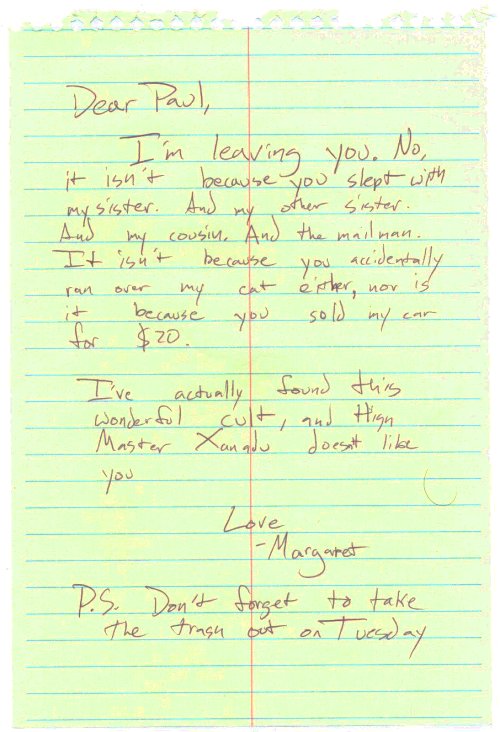 Dear Paul,
I'm leaving you. No,
it isn't because you slept with
my sister. And my other sister.
And my cousin. And the mailman.
It isn't because you accidentally
ran over my cat either, nor is
it because you sold my car
for $20.
I've actually found this
wonderful cult, and High
Master Xanadu doesn't like
you
Love
-Margaret
P.S. Don't forget to take
the trash out on Tuesday